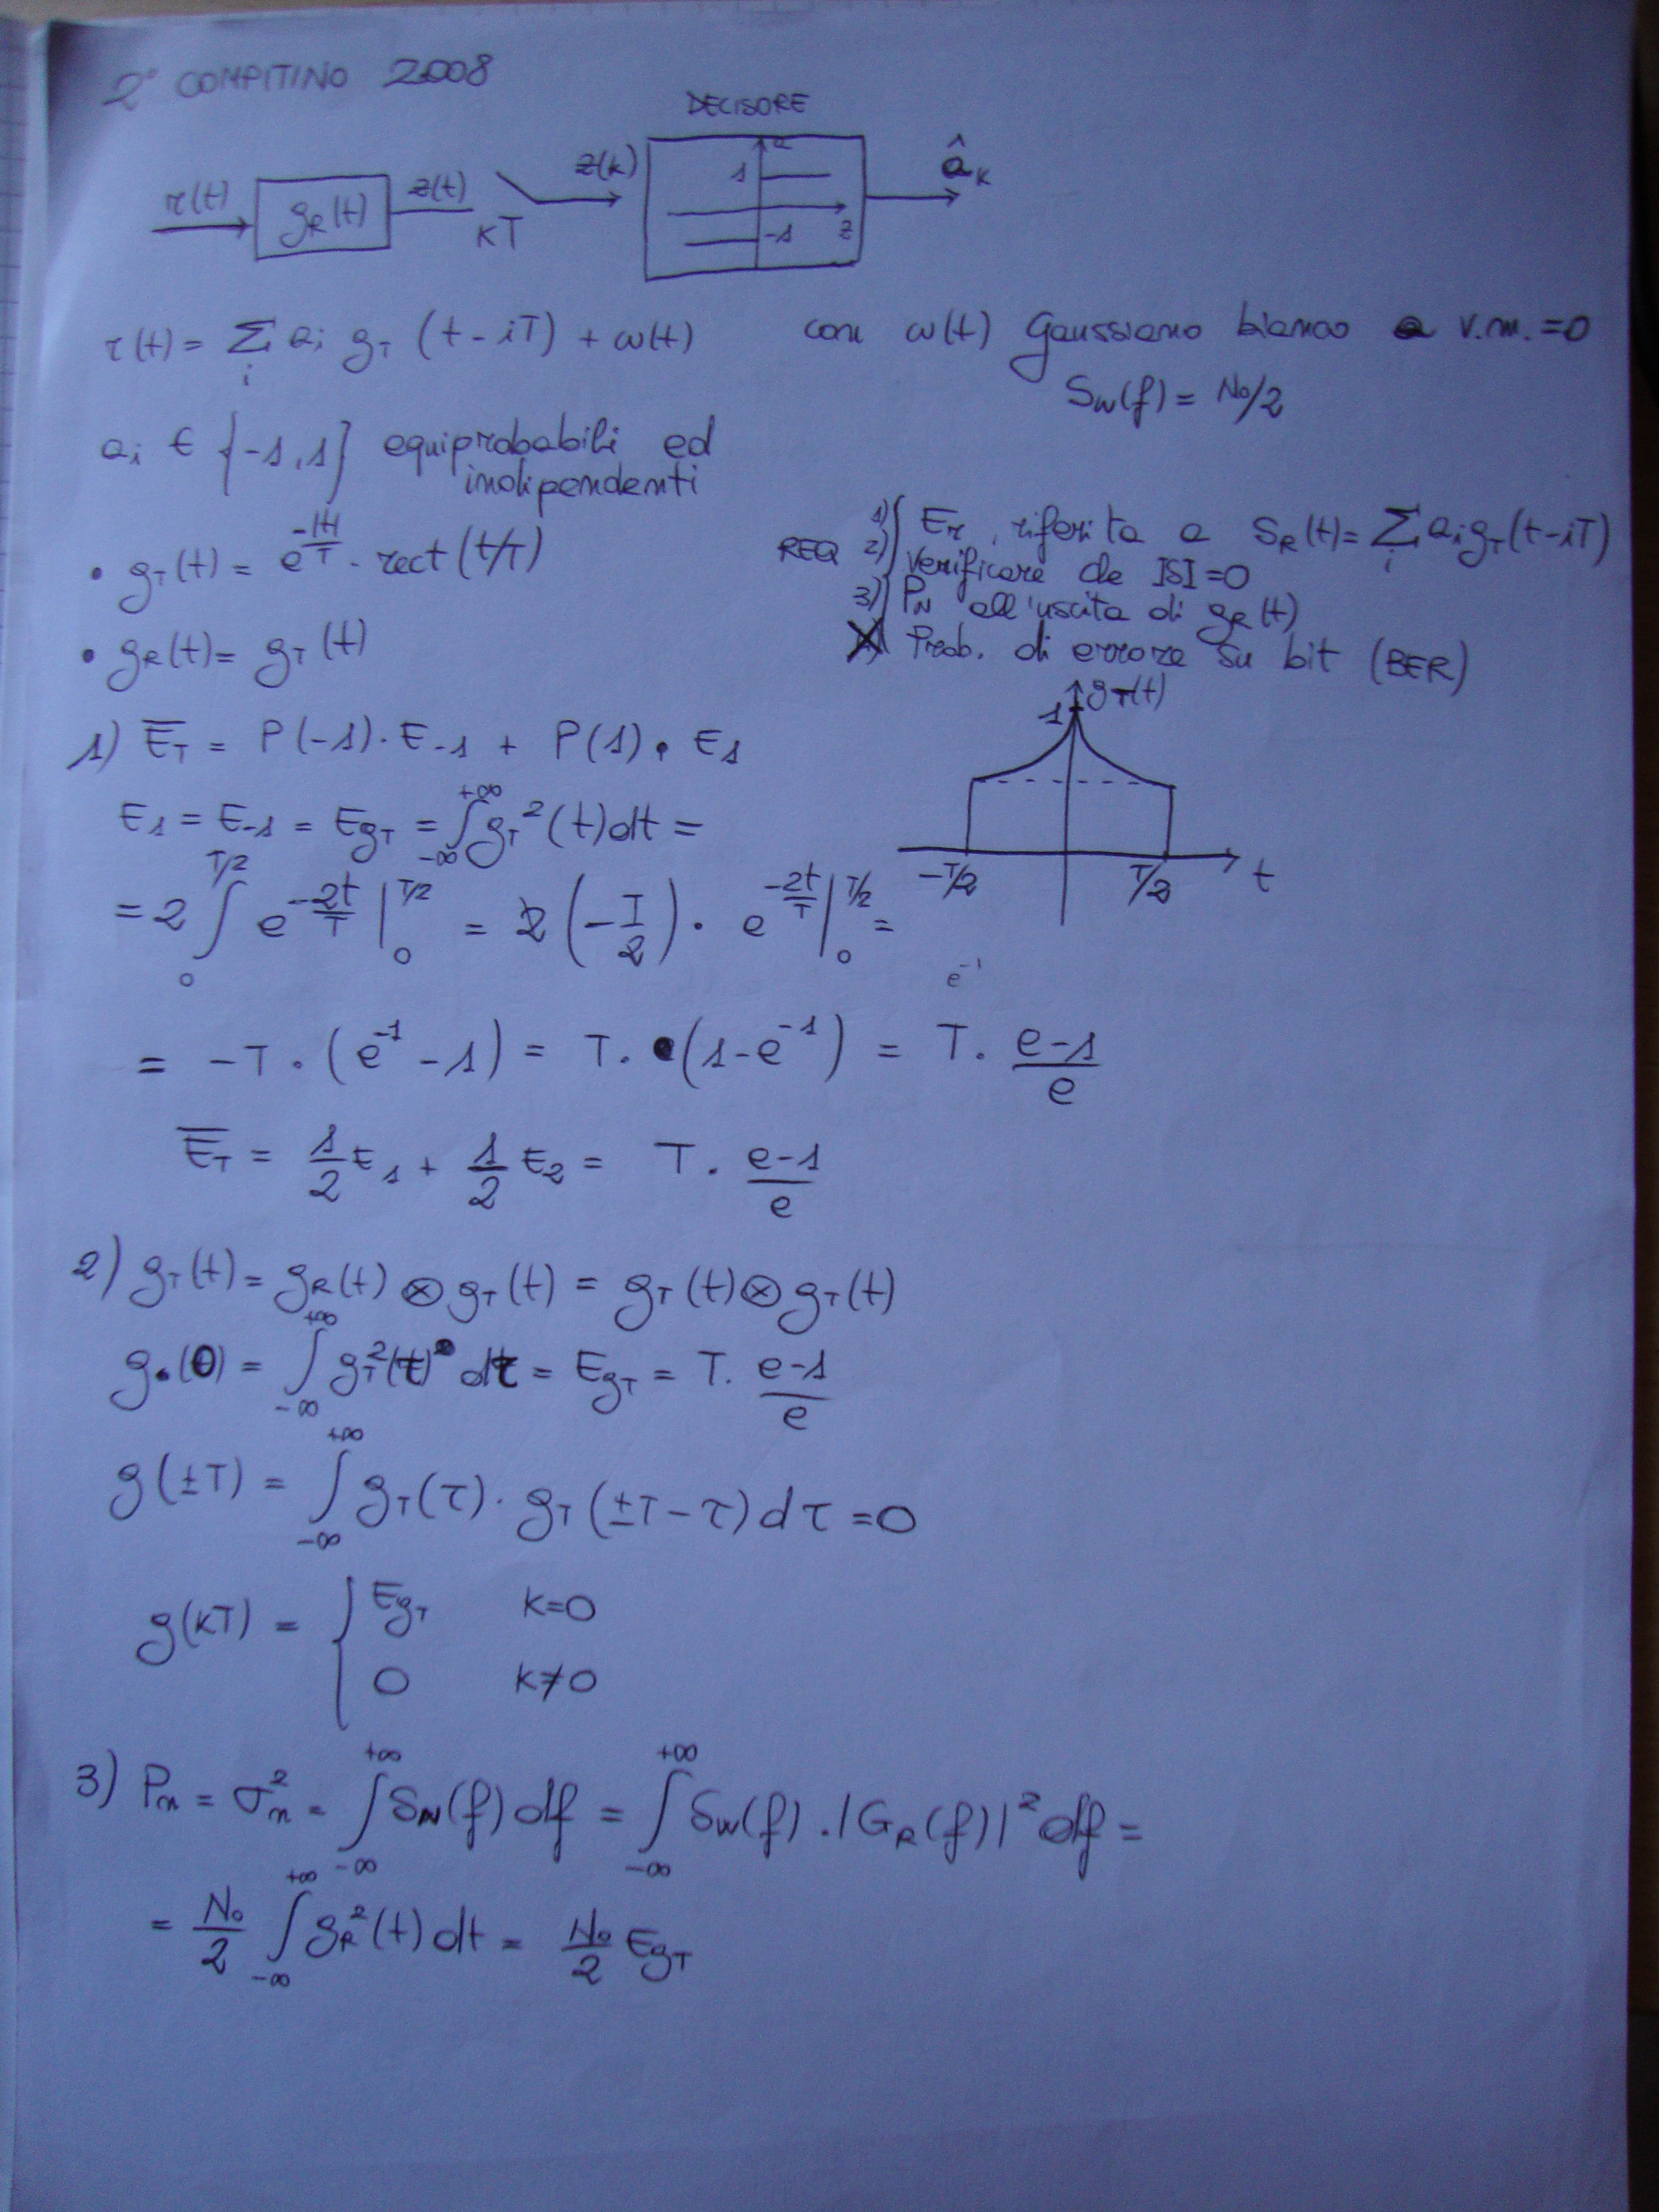 2° COMPITINO 2008
DECISORE
r(t) gR(t) z(t) kT z(k) 1 a -1 z âk
r(t) = Σi ai gT (t-iT) + w(t) con w(t) Gaussiano bianco a v.m. = 0
Sw(f) = No/2
ai ∈ {-1,1} equiprobabili ed
indipendenti
• gT(t) = e^(-|t|/T) · rect(t/T)
• gR(t) = gT(t)
REQ
1) Er, riferita a SR(t) = Σi ai gT(t-iT)
2) Verificare che ISI=0
3) PN all'uscita di gR(t)
Prob. di errore su bit (BER)
gT(t)
1
-T/2 T/2 t
1) ET = P(-1)·E-1 + P(1)·E1
E1 = E-1 = EgT = ∫_{-∞}^{+∞} gT²(t)dt =
= 2 ∫_0^{T/2} e^(-2t/T) |_0^{T/2} = 2 (-T/2) · e^(-2t/T) |_0^{T/2} =
e^-1
= -T · (e^-1 - 1) = T · (1-e^-1) = T · (e-1)/e
ET = 1/2 E1 + 1/2 E2 = T · (e-1)/e
2) gT(t) = gR(t) ⊗ gT(t) = gT(t) ⊗ gT(t)
g(0) = ∫_{-∞}^{+∞} gT²(τ) dτ = EgT = T · (e-1)/e
g(±T) = ∫_{-∞}^{+∞} gT(τ) · gT(±T-τ) dτ = 0
g(kT) = { EgT k=0
0 k≠0
3) Pn = σn² = ∫_{-∞}^{+∞} SN(f) df = ∫_{-∞}^{+∞} SW(f) · |GR(f)|² df =
= No/2 ∫_{-∞}^{+∞} gR²(t) dt = No/2 EgT